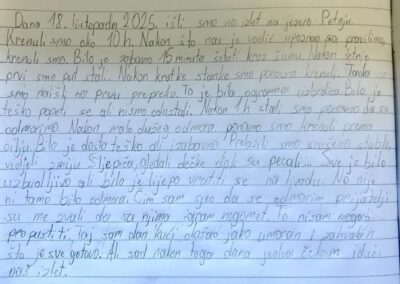 Dana 18. listopada 2025. išli smo na izlet na jezero Petnja.
Krenuli smo oko 10 h. Nakon što nas je vodič upoznao sa pravilima,
krenuli smo. Bilo je zabavno 15 minuta šetati kroz šumu. Nakon šetnje
prvi smo put stali. Nakon kratke stanke smo ponovno krenuli. Tada
smo naišli na prvu prepreku. To je bila ogromna uzbrdica. Bilo je
teško popeti se ali nismo odustali. Nakon 1 h stali smo ponovno da se
odmorimo. Nakon malo dužeg odmora ponovno smo krenuli prema
cilju. Bilo je dosta teško ali i zabavno. Prelazili smo srušeno stablo,
vidjeli zmiju Sljepića, gledali dečke dok su pecali... Sve je bilo
uzbudljivo ali bilo je lijepo vratiti se na livadu. No nije
ni tamo bilo odmora. Čim sam sjeo da se odmorim prijatelji
su me zvali da sa njima igram nogomet. To nisam mogao
propustiti. Taj sam dan kući otišao jako umoran i zahvalan
što je sve gotovo. Ali sad nakon toga dana jedva čekam idući
naš izlet.